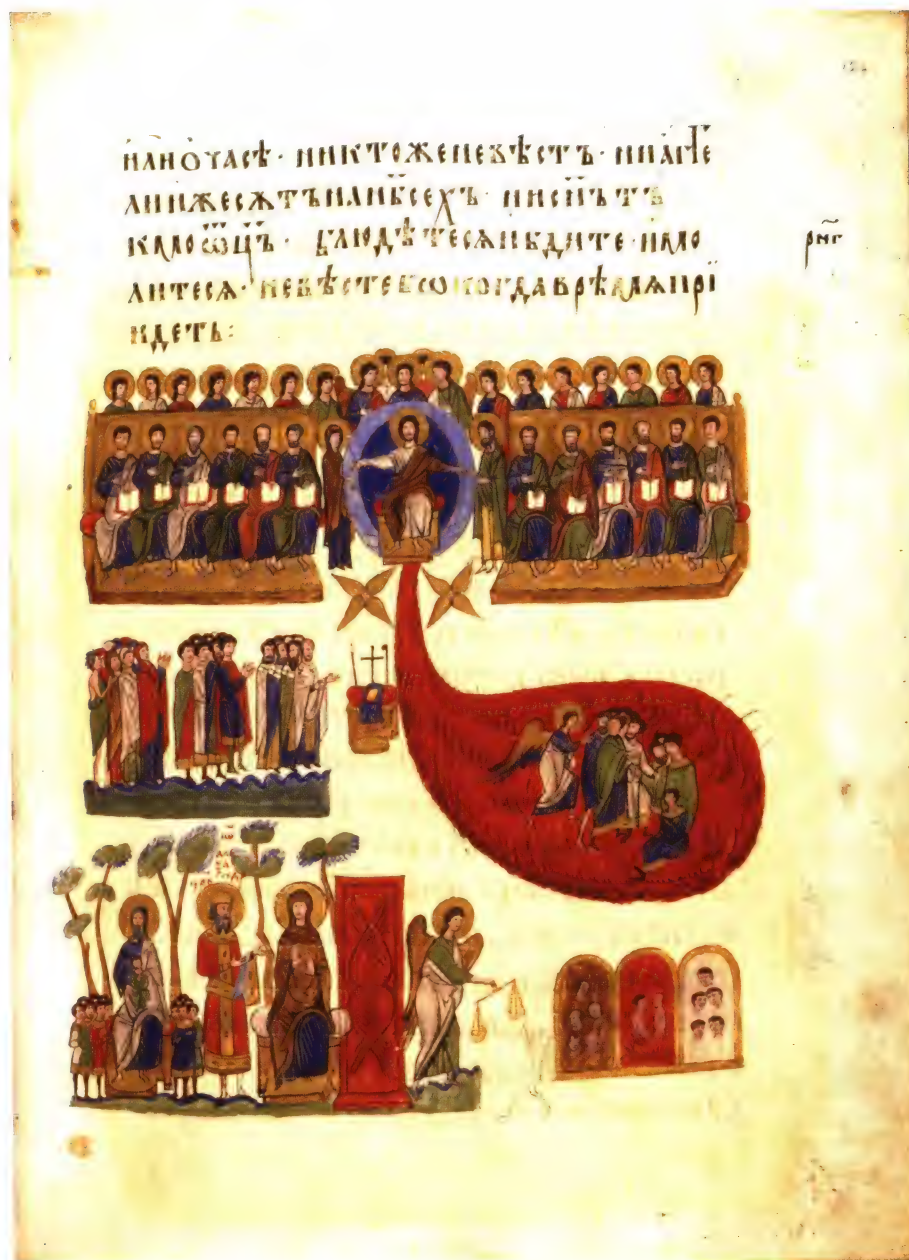 124
или о часѣ · никтоже не вѣстъ · ни аг҃ге
ли иже сѫтъ на нб҃сехъ · ни сн҃ъ тъ
кмо ѿц҃ъ · блюдѣтесѧ и бдите · и мо
литесѧ · не вѣсте бѡ когда врѣмѧ прі
идетъ :
рм҃г